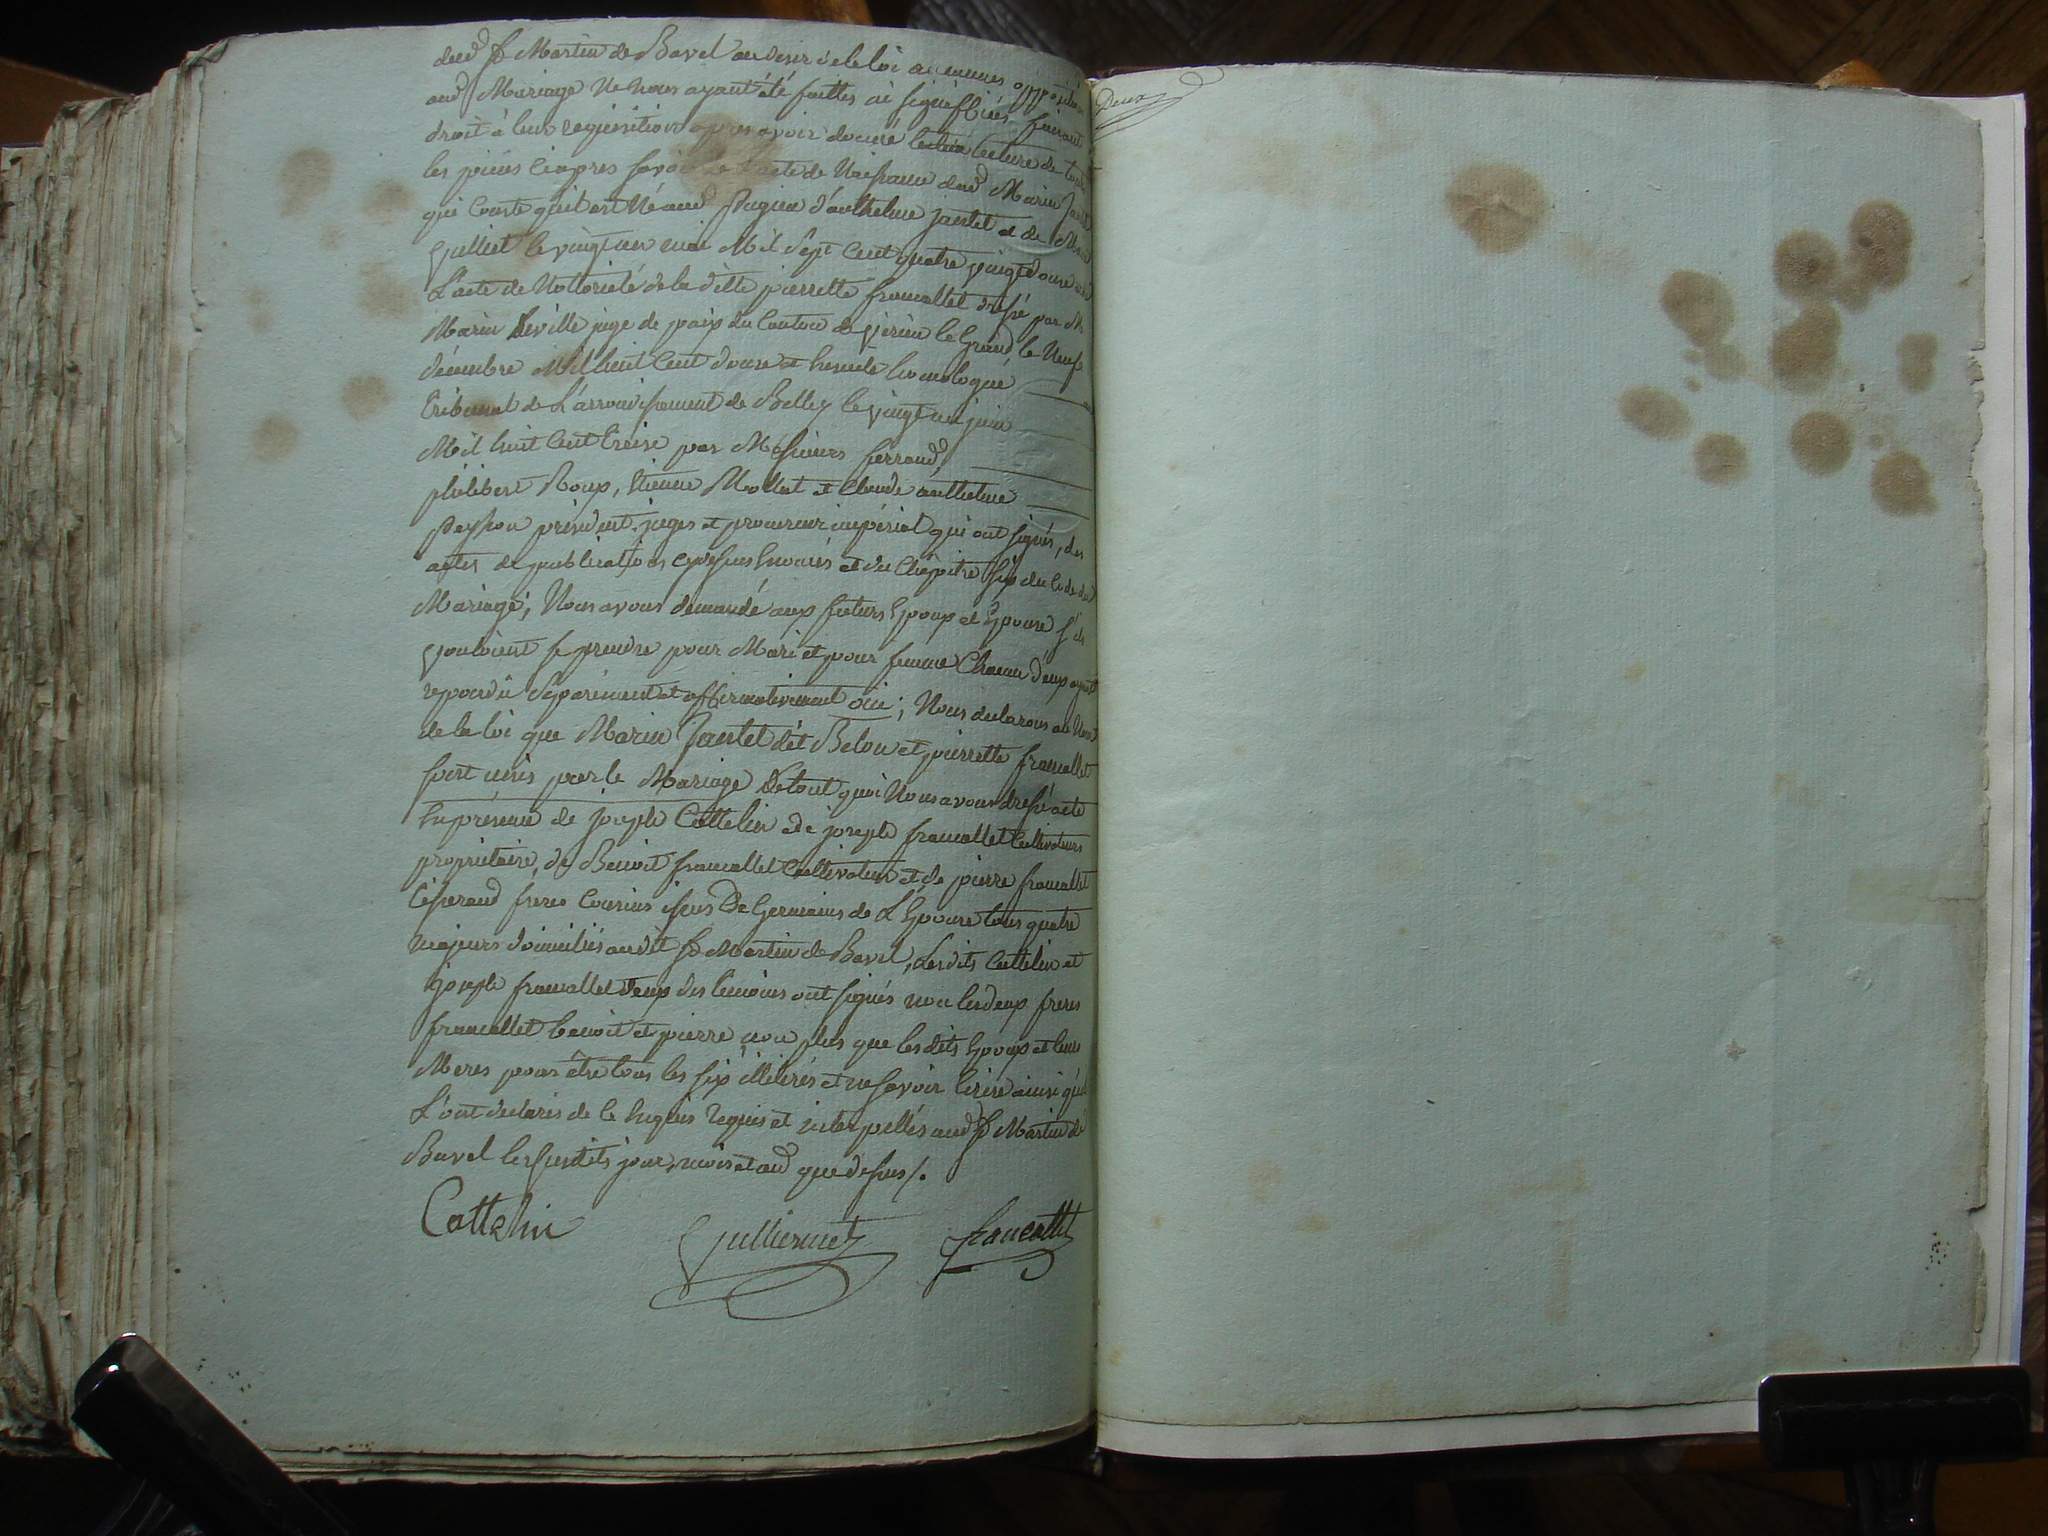 dud St Martin de Bavel au desir de la loi aucunes opposition
aud Mariage Ne nous ayant été faittes ni signiffiées, faisant
droit à leur requisition apres avoir donné lecture de toutes
les pieces ci apres savoir de l'acte de Naissance dud Marin Jantet
qui Conste quil est Né aud Pugieu d'anthelme jantet et de
Gulliet le vingt un mai Mil Sept Cent quatre vingt douze
L'acte de Nottorieté de la ditte pierrette francallet dressé par M
Marin Deville juge de paix du Canton de Virieu le Grand le Neuf
décembre Mil huit Cent douze et homologué
tribunal de L'arrondissement de Belley le vingt un juin
Mil huit Cent treize par Messieurs ferrand,
philibert Roux, Etienne Mollet et Claude anthelme
Peysson président, juges et procureur impérial qui ont signés, des
actes de publications cydessus énoncés et du Chapitre six du Code du
Mariage, Nous avons demandé aux futurs Epoux et Epouse s'ils
vouloient se prendre pour Mari et pour femme Chacun d'eux ayant
repondu séparément et affirmativement oui; Nous declarons au Nom
de la loi que Marin Jantet dit Belou et pierrette francallet
sont unis par le Mariage De tout quoi Nous avons dressé acte
En présence de joseph Cattelin et de joseph francallet Cultivateurs
proprietaire, de Benoit francallet Cultivateur et de pierre francallet
tisserand freres Cousins issus De Germains de L'Epouse tous quatre
majeurs domiciliés audit St Martin de Bavel, Lesdits Cattelin et
Joseph francallet Deux des temoins ont signés non les deux freres
francallet benoit et pierre non plus que les dits Epoux et leurs
Meres pour être tous les six illiterés et ne savoir Ecrire ainsi qu'ils
L'ont declarés de ce Enquis Requis et interpellés aud St Martin de
Bavel les susdits jour, mois et an que dessus /.
Cattelin Gulliermet francallet
Deux